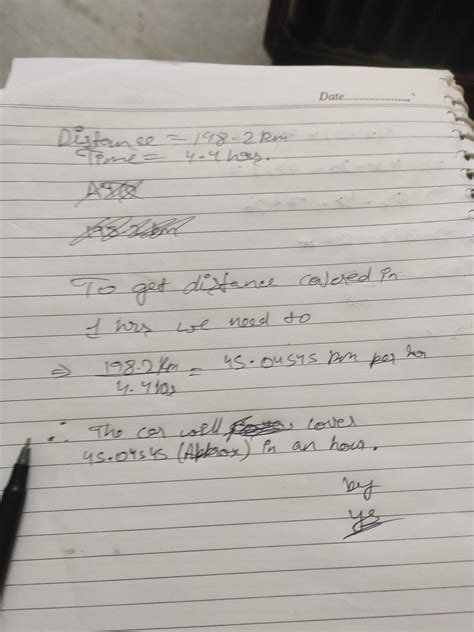 Date....................
Distance = 198.2 km
Time = 4.4 hrs.
To get distance covered in
1 hrs we need to
⇒ 198.2 km = 45.04545 km per hr
4.4 hrs
∴ The car will cover
45.04545 (Approx) in an hour.
by
ys